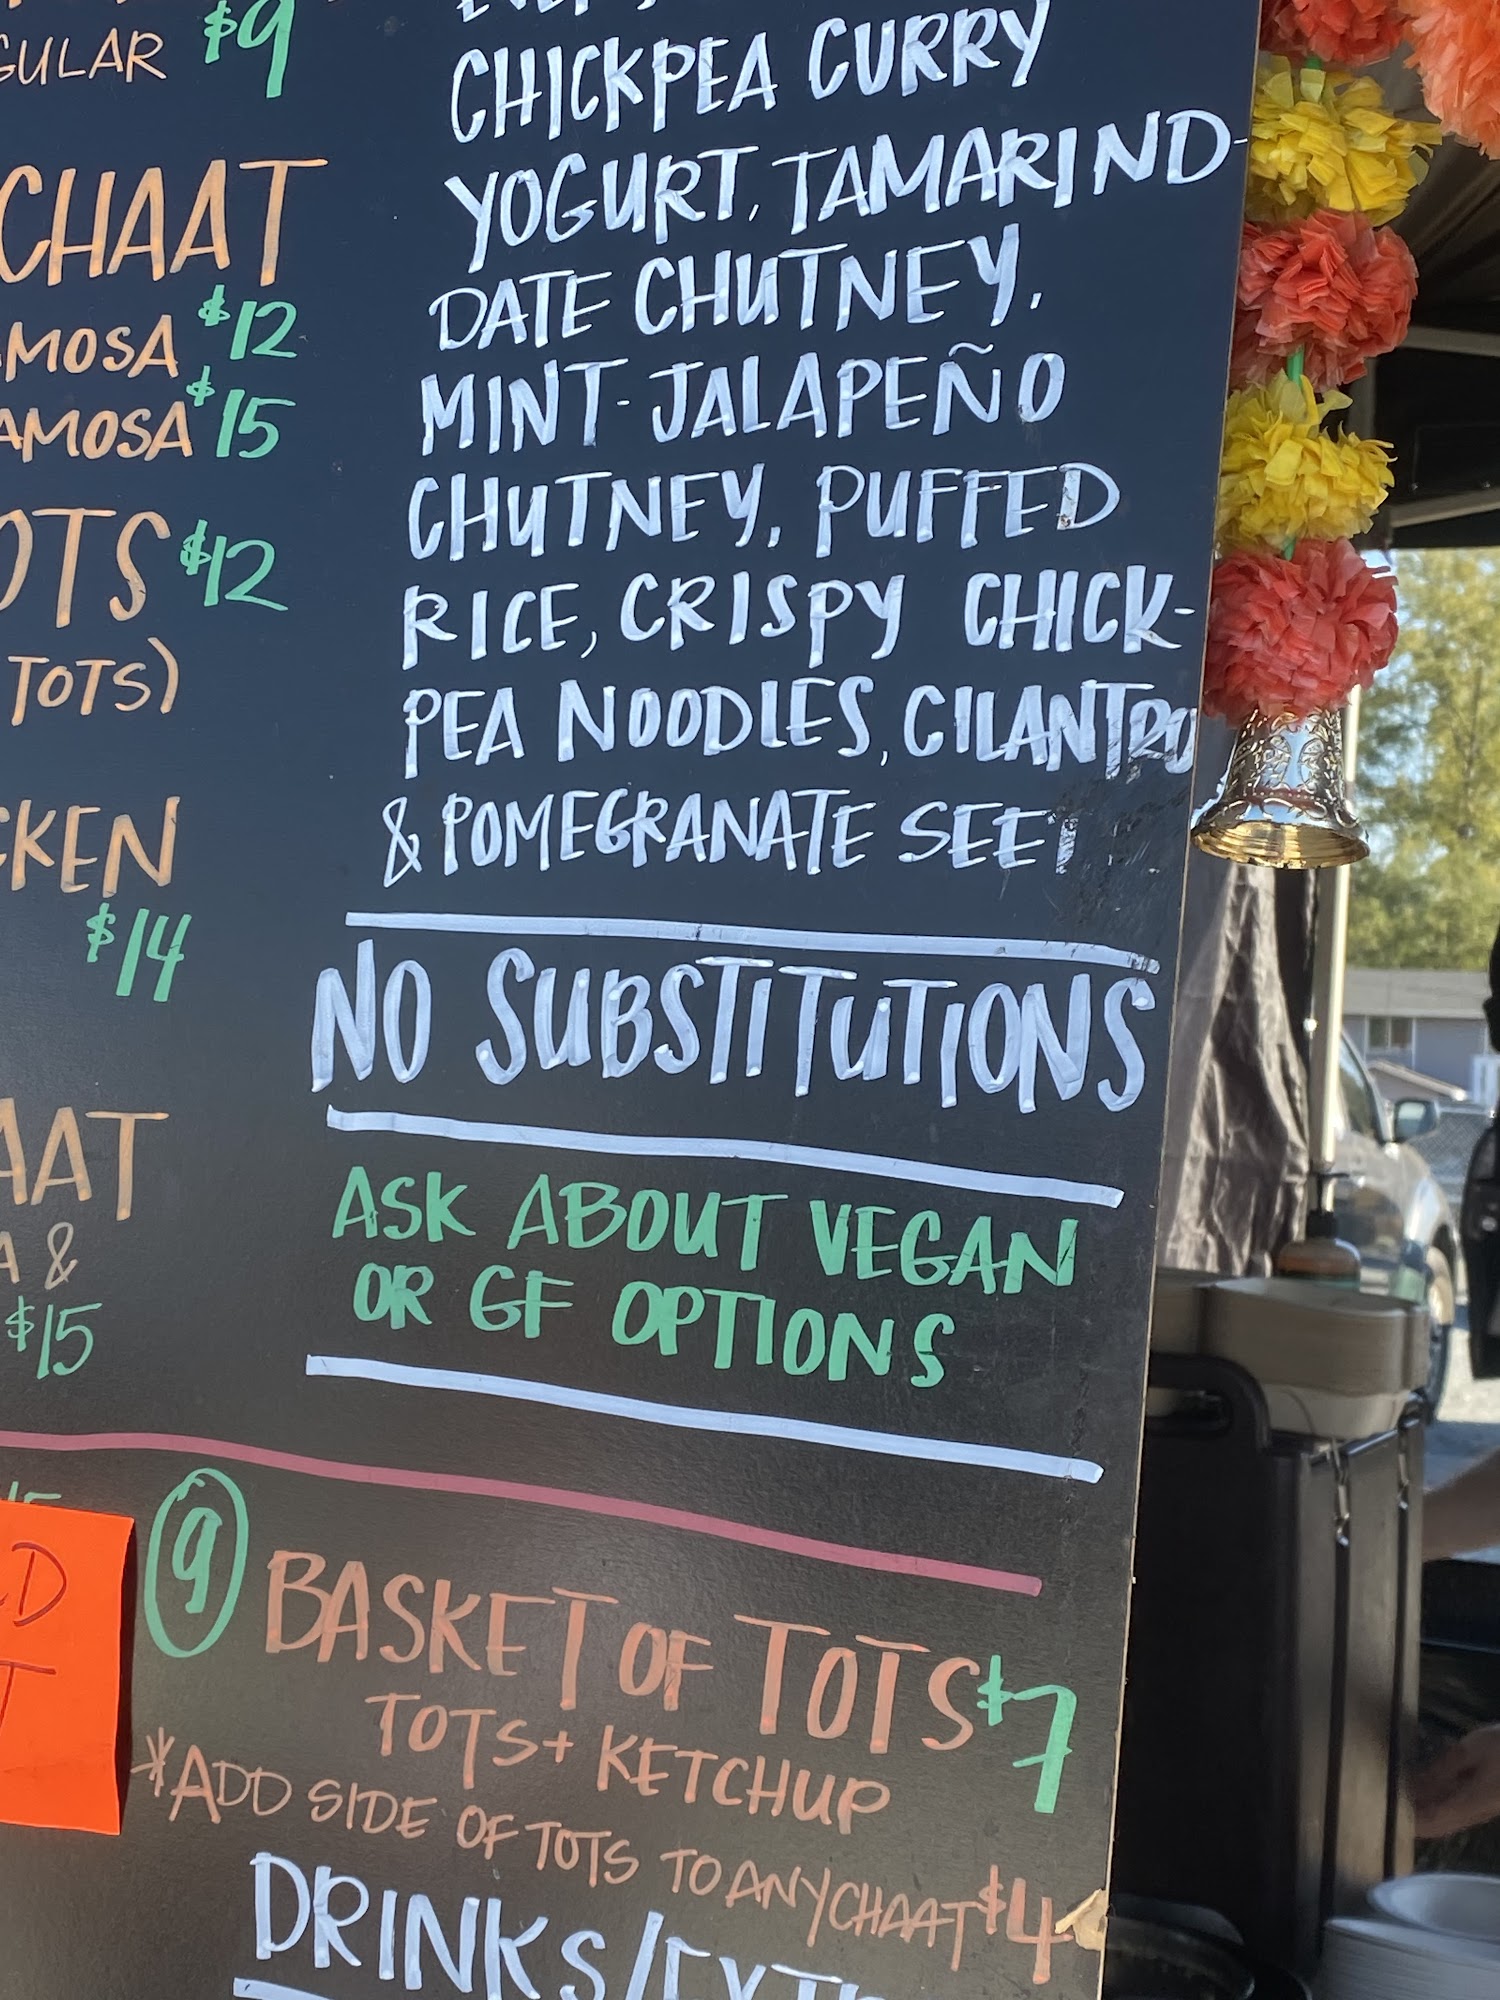 $9
CHAAT
$12
$15
$12
TOTS)
$14
&
$15
CHICKPEA CURRY
YOGURT, TAMARIND-
DATE CHUTNEY,
MINT-JALAPEÑO
CHUTNEY, PUFFED
RICE, CRISPY CHICK-
PEA NOODLES, CILANTRO
& POMEGRANATE SEE
NO SUBSTITUTIONS
ASK ABOUT VEGAN
OR GF OPTIONS
9 BASKET OF TOTS $7
TOTS + KETCHUP
*ADD SIDE OF TOTS TO ANY CHAAT $4
DRINKS/